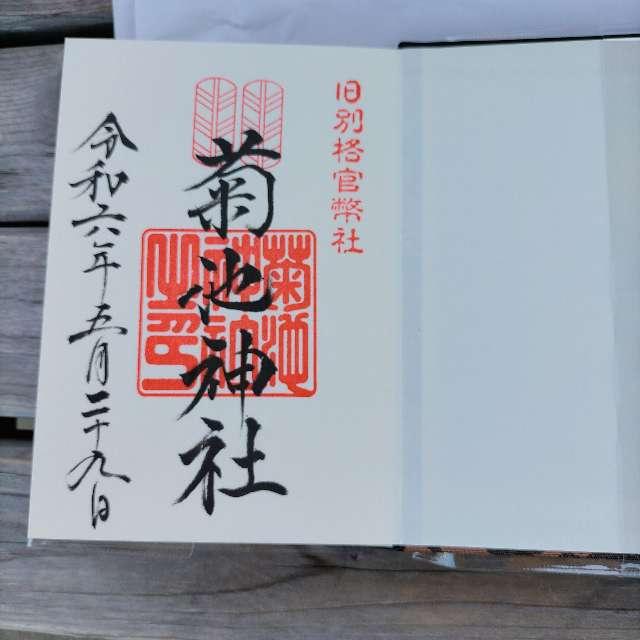 旧別格官幣社
菊池神社
菊池
神社
之印
令和六年五月二十九日